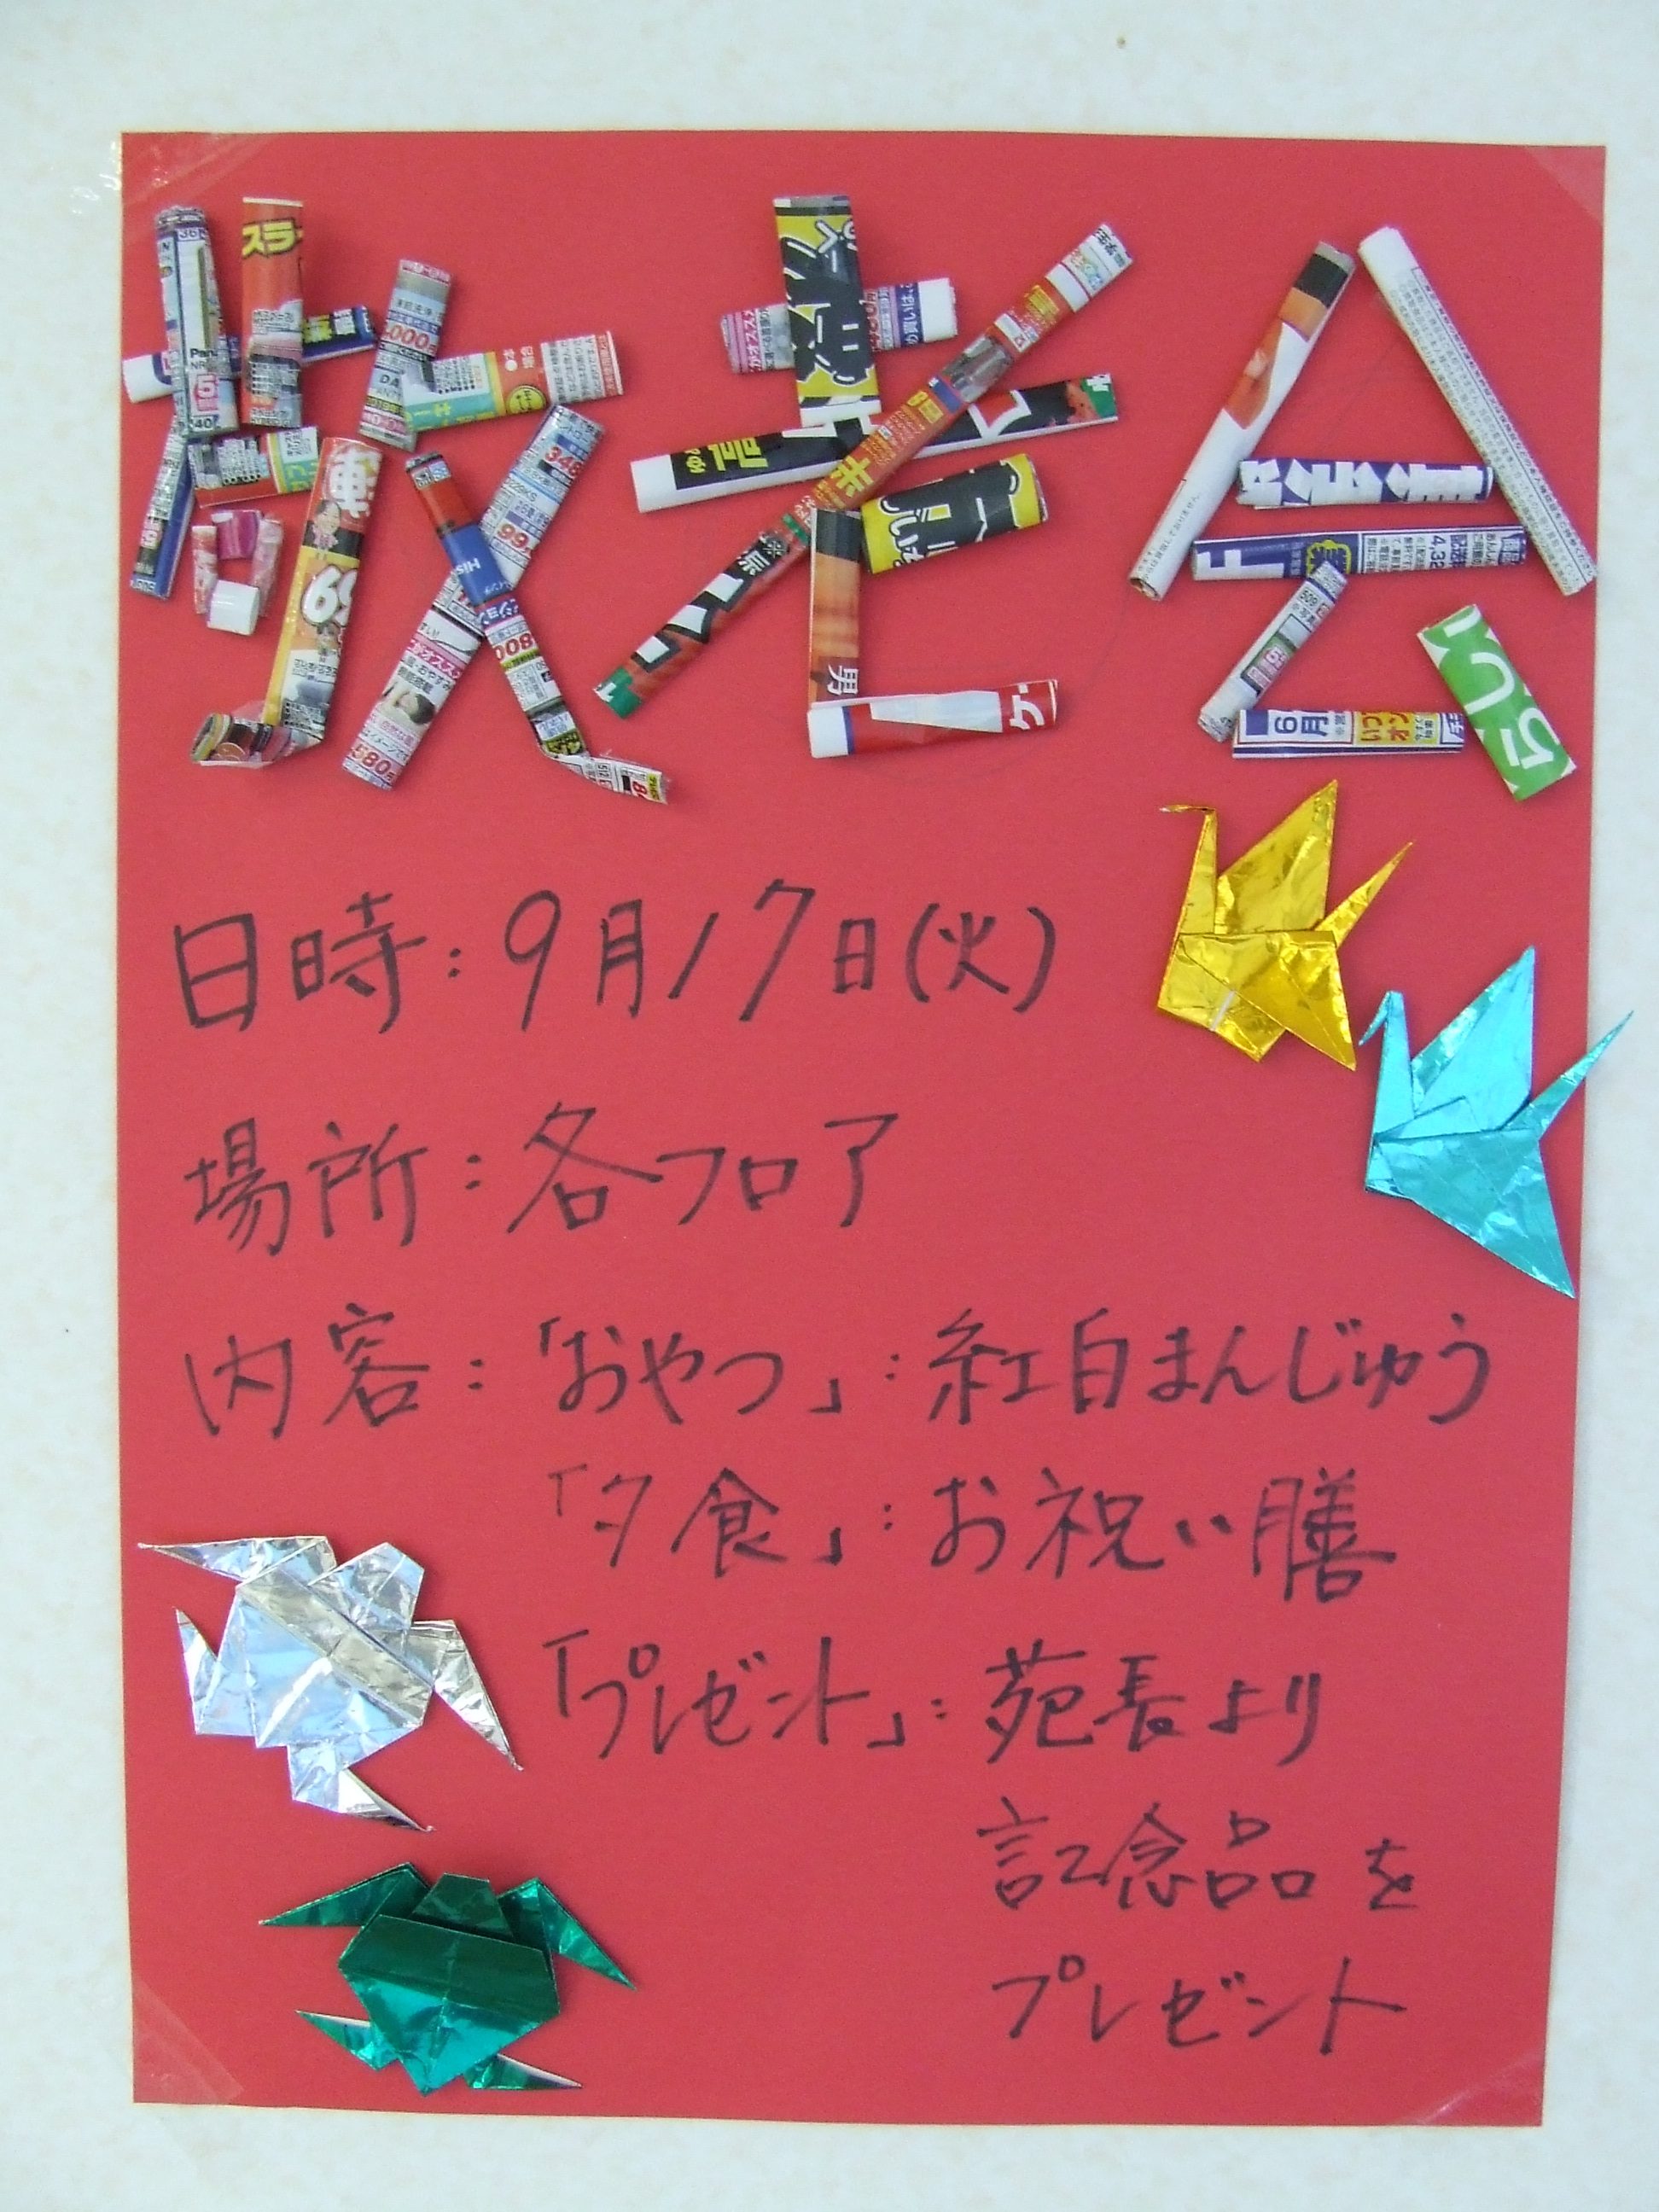 敬老会
日時:9月17日(火)
場所:各フロア
内容:「おやつ」:紅白まんじゅう
「夕食」:お祝い膳
「プレゼント」:苑長より
記念品を
プレゼント